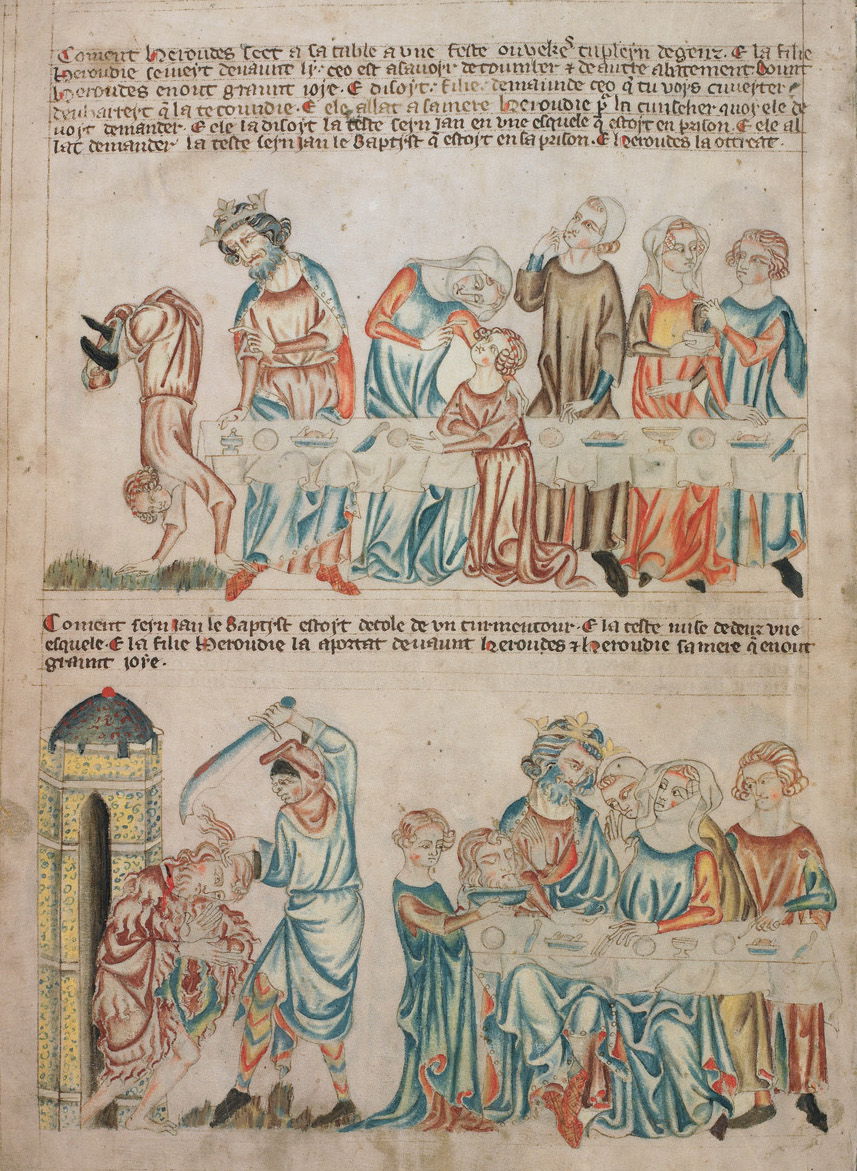 Coment Heroudes seet a sa table a une feste ou veke⁹ tu pleyn de genz. E la filie
Heroudie servert devaunt ly. ceo est a savoyr de toumber & de autre abatement Dount
Heroudes enout graunt joye. E disoyt. filie demaunde ceo q tu voys
q la te E ele allat a sa mere Heroudie quoy ele de
voyt demander. E ele la disoyt la teste seyn Jan en une esquele q estoyt en prison. E ele al
lat demander la teste seyn Jan le Baptist q estoyt en sa prison. E Heroudes la ottreat.
Coment seyn Jan le Baptist estoyt decole de un turmentour. E la teste mise dedenz une
esquele. E la filie Heroudie la aportat devaunt Heroudes & Heroudie sa mere q enout
graunt joye.